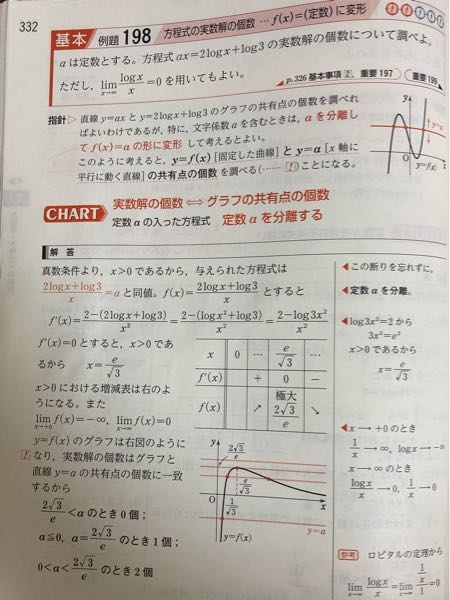 332
基本 例題 198 方程式の実数解の個数 … f(x)=(定数) に変形
aは定数とする。方程式 ax=2logx+log3 の実数解の個数について調べよ。
ただし，lim[x→∞] logx/x =0 を用いてもよい。
p.326 基本事項 2，重要 197 重要 199
指針▷ 直線 y=ax と y=2logx+log3 のグラフの共有点の個数を調べれ
ばよいわけであるが，特に，文字係数 a を含むときは，a を分離し
て f(x)=a の形に変形 して考えるとよい。
このように考えると，y=f(x) [固定した曲線] と y=a [x 軸に
平行に動く直線] の共有点の個数 を調べる (…… !) ことになる。
y
y=a
O
x
y=f(x)
CHART 実数解の個数 ⇔ グラフの共有点の個数
定数 a の入った方程式 定数 a を分離する
解答
真数条件より，x>0 であるから，与えられた方程式は
(2logx+log3)/x =a と同値。f(x)= (2logx+log3)/x とすると
f'(x)= (2-(2logx+log3))/x² = (2-(logx²+log3))/x² = (2-log3x²)/x²
f'(x)=0 とすると，x>0 であ
るから x= e/√3
x>0 における増減表は右のよ
うになる。また
lim[x→+0] f(x)=-∞, lim[x→∞] f(x)=0
x 0 … e/√3 …
f'(x) + 0 -
f(x) ↗ 極大 2√3/e ↘
y=f(x) のグラフは右図のように
! なり，実数解の個数はグラフと
直線 y=a の共有点の個数に一致
するから
2√3/e <a のとき 0 個；
a≦0, a= 2√3/e のとき 1 個；
0<a< 2√3/e のとき 2 個
y
2√3/e
e/√3
O
1/√3
x
y=a
y=f(x)
◀この断りを忘れずに。
◀定数 a を分離。
◀log3x²=2 から
3x²=e²
x>0 であるから
x= e/√3
◀x → +0 のとき
1/x → ∞, logx → -∞
x → ∞ のとき
logx/x → 0, 1/x → 0
参考 ロピタルの定理から
lim[x→∞] logx/x = lim[x→∞] (1/x)/1 =0